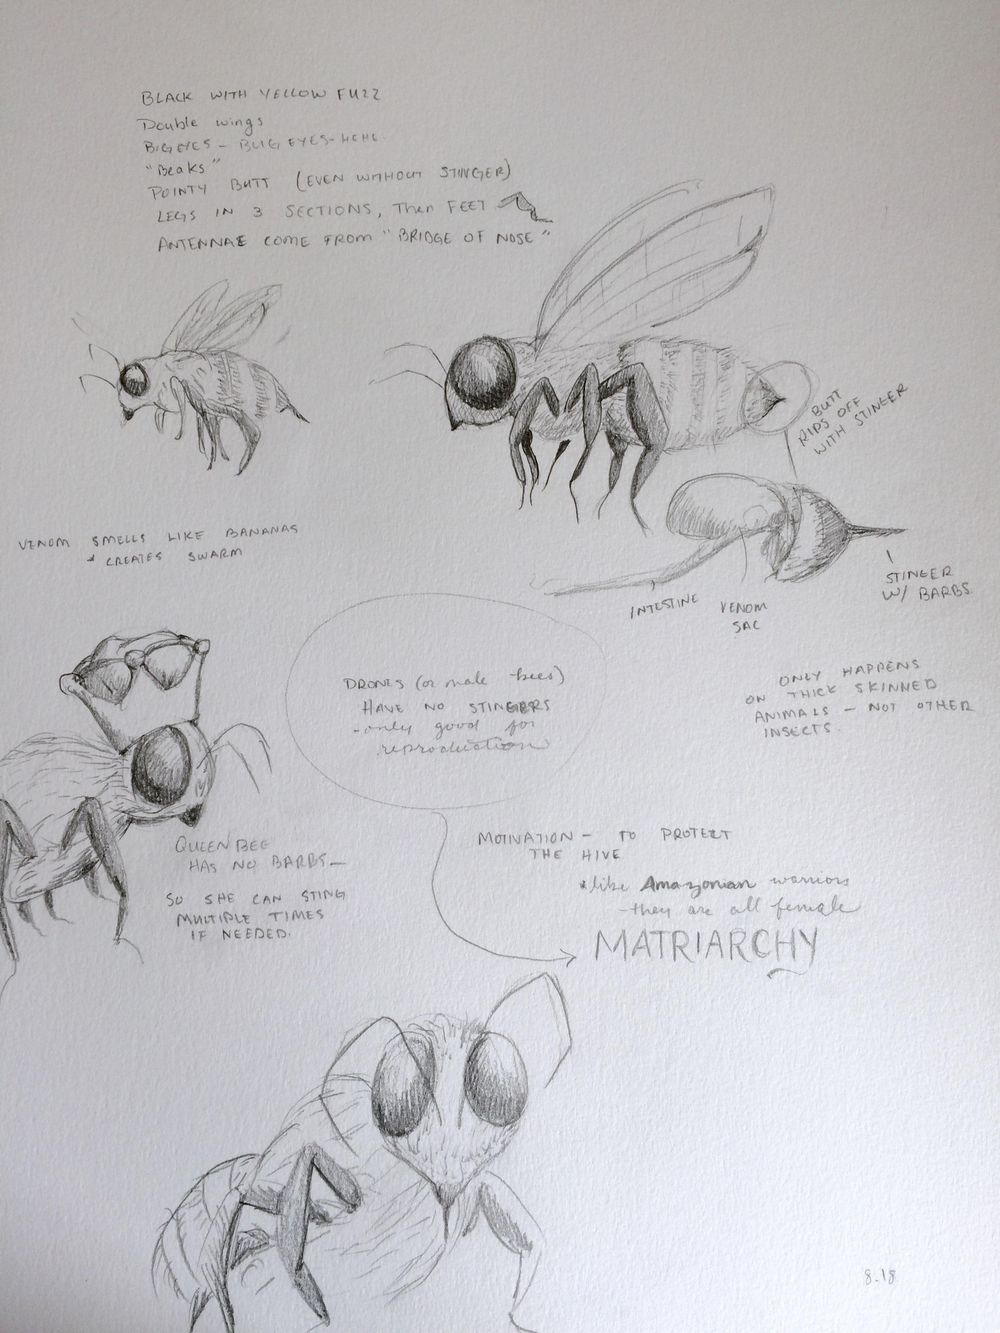 BLACK WITH YELLOW FUZZ
Double wings
BIG EYES - BUG EYES - HEHE.
"Beaks"
POINTY BUTT (EVEN WITHOUT STINGER)
LEGS IN 3 SECTIONS, Then FEET
ANTENNAE COME FROM "BRIDGE OF NOSE"
BUTT
RIPS OFF
WITH STINGER
VENOM SMELLS LIKE BANANAS
* CREATES SWARM
INTESTINE
VENOM
SAC
STINGER
W/ BARBS.
DRONES (or male bees)
HAVE NO STINGERS
- only good for
reproduction
ONLY HAPPENS
ON THICK SKINNED
ANIMALS - NOT OTHER
INSECTS.
QUEEN BEE
HAS NO BARBS -
SO SHE CAN STING
MULTIPLE TIMES
IF NEEDED.
MOTIVATION - TO PROTECT
THE HIVE
* like Amazonian warriors
- they are all female
MATRIARCHY
8.18